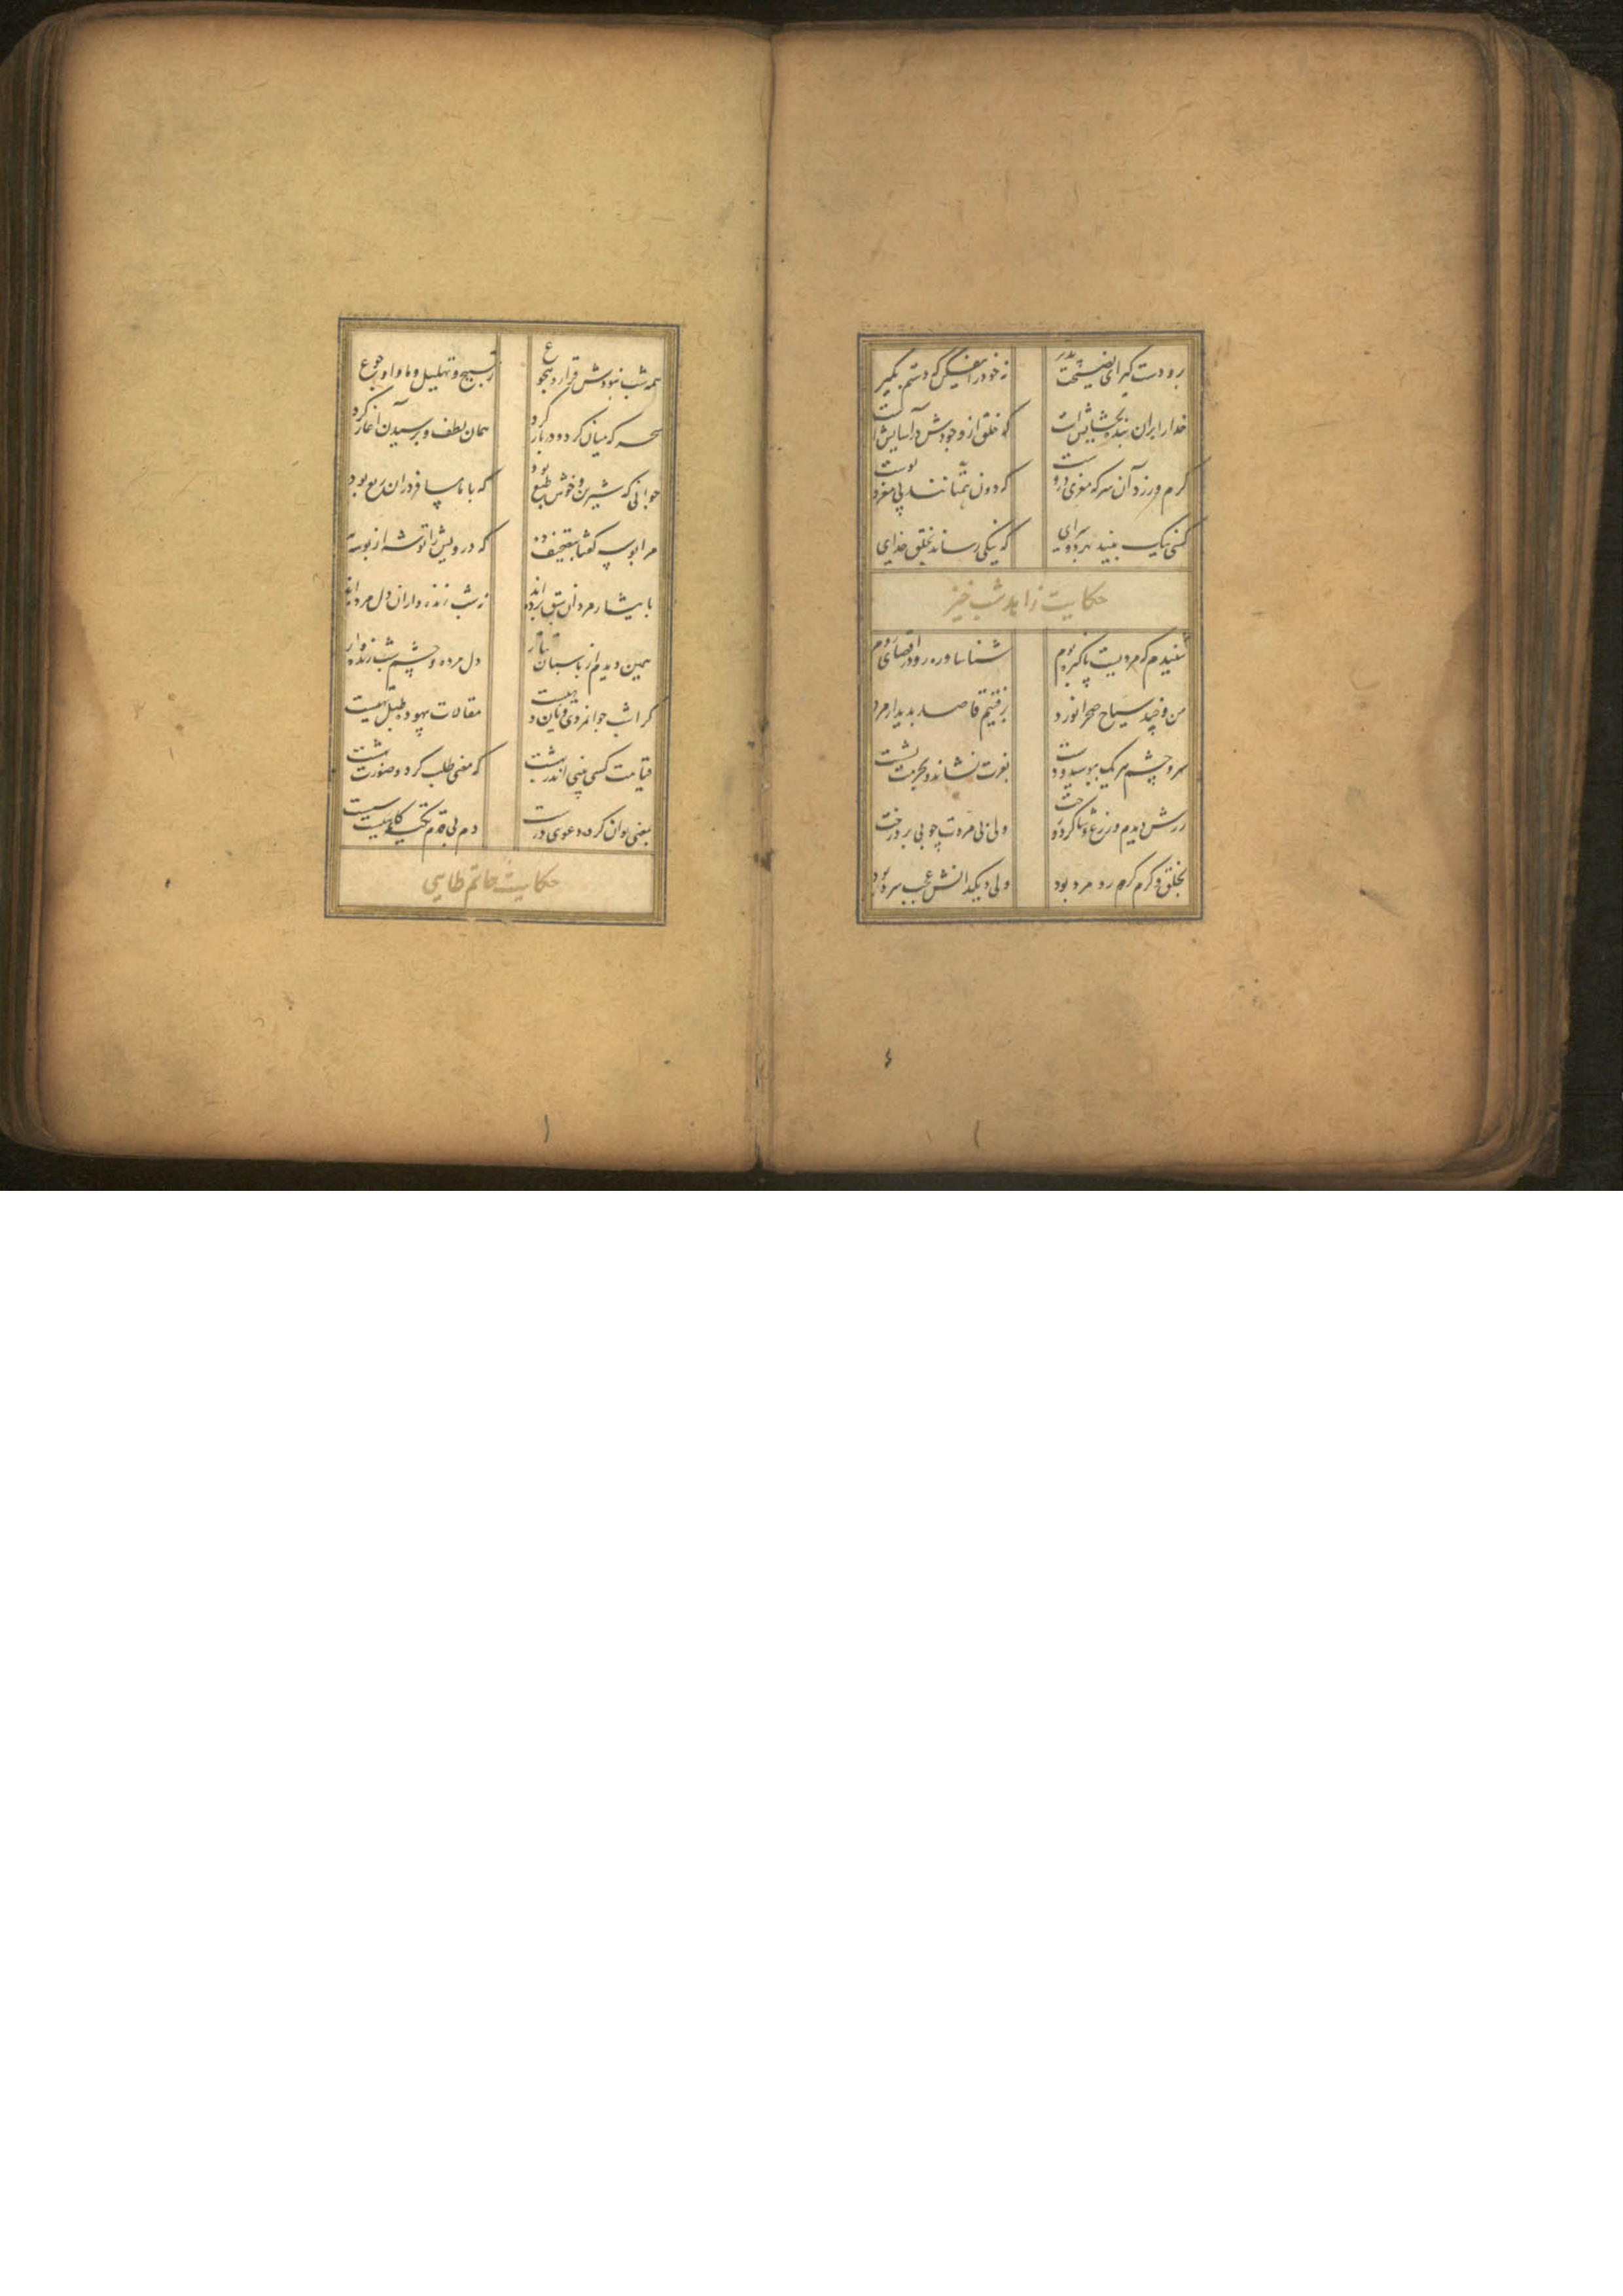 برو دست گیر ای نصیحت پذیر
نه خود را بیفکن که دستم بگیر
خدا را بران بنده بخشایش است
که خلق از وجودش در آسایش است
کرم ورزد آن سر که مغزی دروست
که دون همتانند بی مغز و پوست
کسی نیک بیند بهر دو سرای
که نیکی رساند بخلق خدای
حکایت زاهد شب خیز
شنیدم که مردیست پاکیزه بوم
شناسا و ره رو در اقصای روم
من و چند سیاح صحرا نورد
برفتیم قاصد بدیدار مرد
سر و چشم هر یک ببوسید و دست
بعزت نشاند و بحرمت نشست
زرش دیدم و زرع و شاگرد و رخت
ولی بی مروت چو بی بر درخت
بخلق و کرم گرم رو مرد بود
ولی دیگدانش عجب سرد بود
همه شب نبودش قرار و هجوع
ز تسبیح و تهلیل و ما را ز جوع
سحر که میان کرد و در باز کرد
همان لطف و پرسیدن آغاز کرد
جوانی که شیرین و خوش طبع بود
که با ما مسافر دران ربع بود
مرا بوسه گفتا بتصحیف ده
که درویش را توشه از بوسه به
بایثار مردان سبق برده اند
نه شب زنده داران دل مرده اند
همین دیدم از پاسبان تتار
دل مرده و چشم شب زنده دار
کرامت جوانمردی و نان دهیست
مقالات بیهوده طبل تهیست
قیامت کسی بینی اندر بهشت
که معنی طلب کرد و صورت بهشت
بمعنی توان کرد دعوی درست
دم بی قدم تکیه گاهیست سست
حکایت حاتم طایی